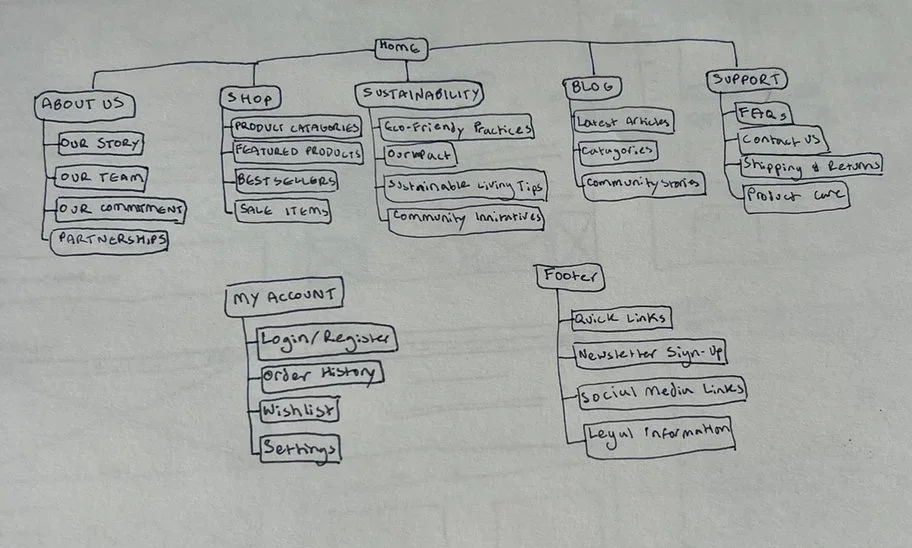 HOME
ABOUT US
OUR STORY
OUR TEAM
OUR COMMITMENT
PARTNERSHIPS
SHOP
PRODUCT CATAGORIES
FEATURED PRODUCTS
BEST SELLERS
SALE ITEMS
SUSTAINABILITY
Eco-Friendly Practices
Our Impact
Sustainable Living Tips
Community Innitatives
BLOG
Latest Articles
Catagories
Community Stories
SUPPORT
FAQs
Contact US
Shipping & Returns
Product Care
MY ACCOUNT
Login/Register
Order History
Wishlist
Settings
Footer
Quick Links
Newsletter Sign-Up
Social Media Links
Legal Information